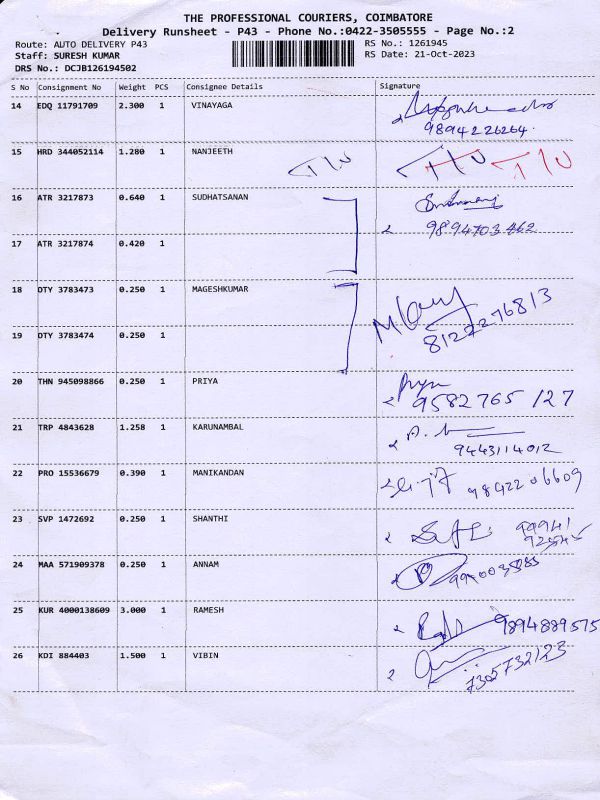 THE PROFESSIONAL COURIERS, COIMBATORE
Delivery Runsheet - P43 - Phone No.:0422-3505555 - Page No.:2
Route: AUTO DELIVERY P43 RS No.: 1261945
Staff: SURESH KUMAR RS Date: 21-Oct-2023
DRS No.: DCJB126194502
S No Consignment No Weight PCS Consignee Details Signature
14 EDQ 11791709 2.300 1 VINAYAGA
9894226264
15 HRD 344052114 1.280 1 NANJEETH T/U T/U T/U
16 ATR 3217873 0.640 1 SUDHATSANAN
9894703462
17 ATR 3217874 0.420 1
18 OTY 3783473 0.250 1 MAGESHKUMAR
8127276813
19 OTY 3783474 0.250 1
20 THN 945098866 0.250 1 PRIYA
9582765127
21 TRP 4843628 1.258 1 KARUNAMBAL
9443114012
22 PRO 15536679 0.390 1 MANIKANDAN 9842206609
23 SVP 1472692 0.250 1 SHANTHI 99941
24 MAA 571909378 0.250 1 ANNAM
25 KUR 4000138609 3.000 1 RAMESH 9894889575
26 KDI 884403 1.500 1 VIBIN
7305732123